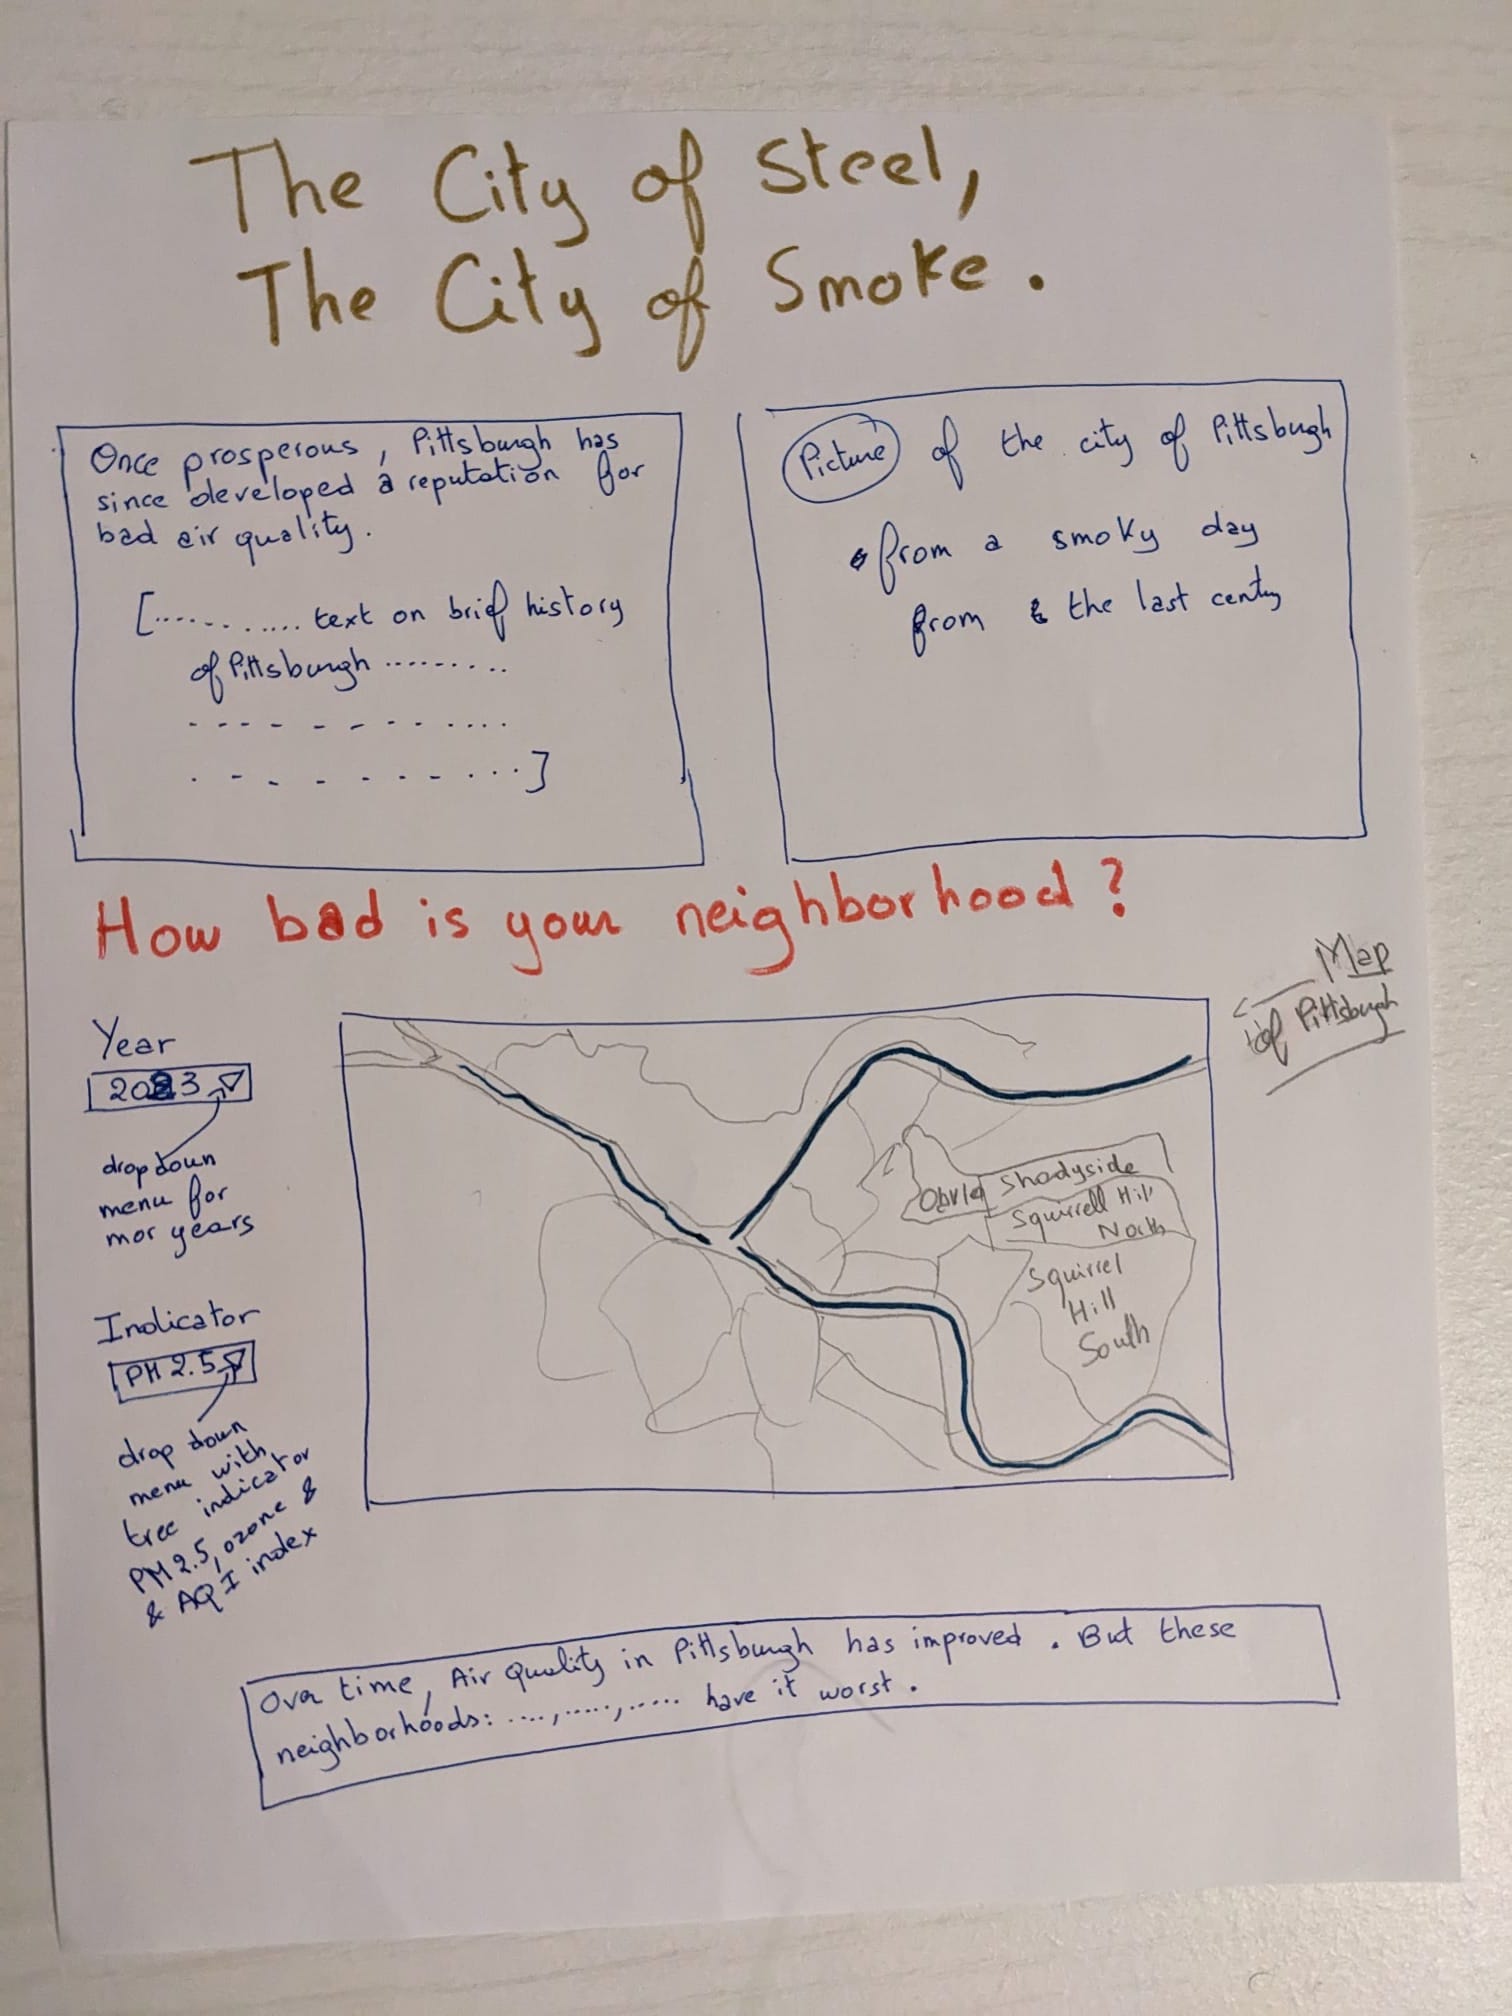 The City of Steel,
The City of Smoke.
Once prosperous, Pittsburgh has
since developed a reputation for
bad air quality.
[........... text on brief history
of Pittsburgh .........
- - - - - - - - ....
. - - - - - - - ...]
Picture of the city of Pittsburgh
from a smoky day
from the last century
How bad is your neighborhood?
Map
of Pittsburgh
Year
2023
drop down
menu for
mor years
Indicator
PM 2.5
drop down
menu with
tree indicator
PM 2.5, ozone &
& AQI index
Shadyside
Squirrell Hill
North
Squirrel
Hill
South
Over time, Air Quality in Pittsburgh has improved. But these
neighborhoods: ....,.....,..... have it worst.